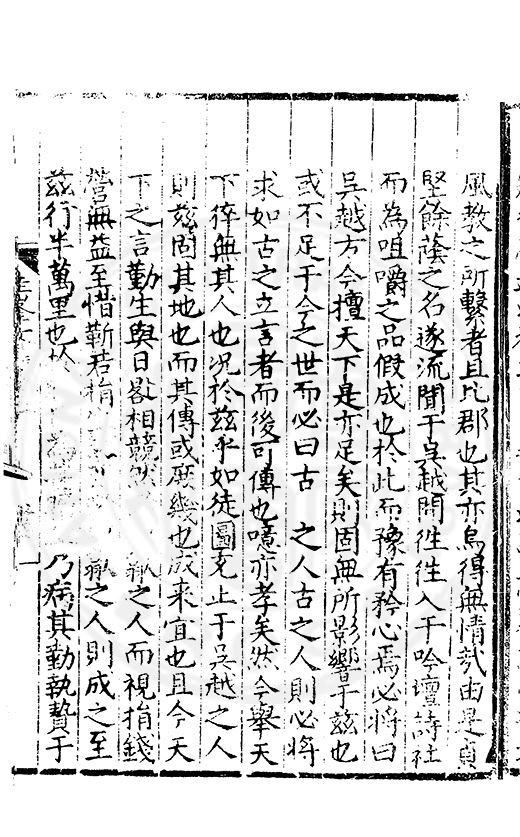 風教之所繫者且凢郡也其亦烏得無情哉由是貞
堅餘蔭之名遂流聞于吳越間徃徃入于吟壇詩社
而為咀嚼之品假成也扵此而豫有矜心焉必將曰
吳越方今擅天下是亦足矣則固無所影響于茲也
或不足于今之世而必曰古之人古之人則必將
求如古之立言者而後可傳也噫亦孝矣然今舉天
下猝無其人也况於茲乎如徒圖克止于吳越之人
則茲固其地也而其傳或庶幾也成来宜也且今天
下之言勤生與日晷相競 之人而視捐錢
營無益至惜靳若捐 之人則成之至
茲行半萬里也扵 乃病其勤執贄于